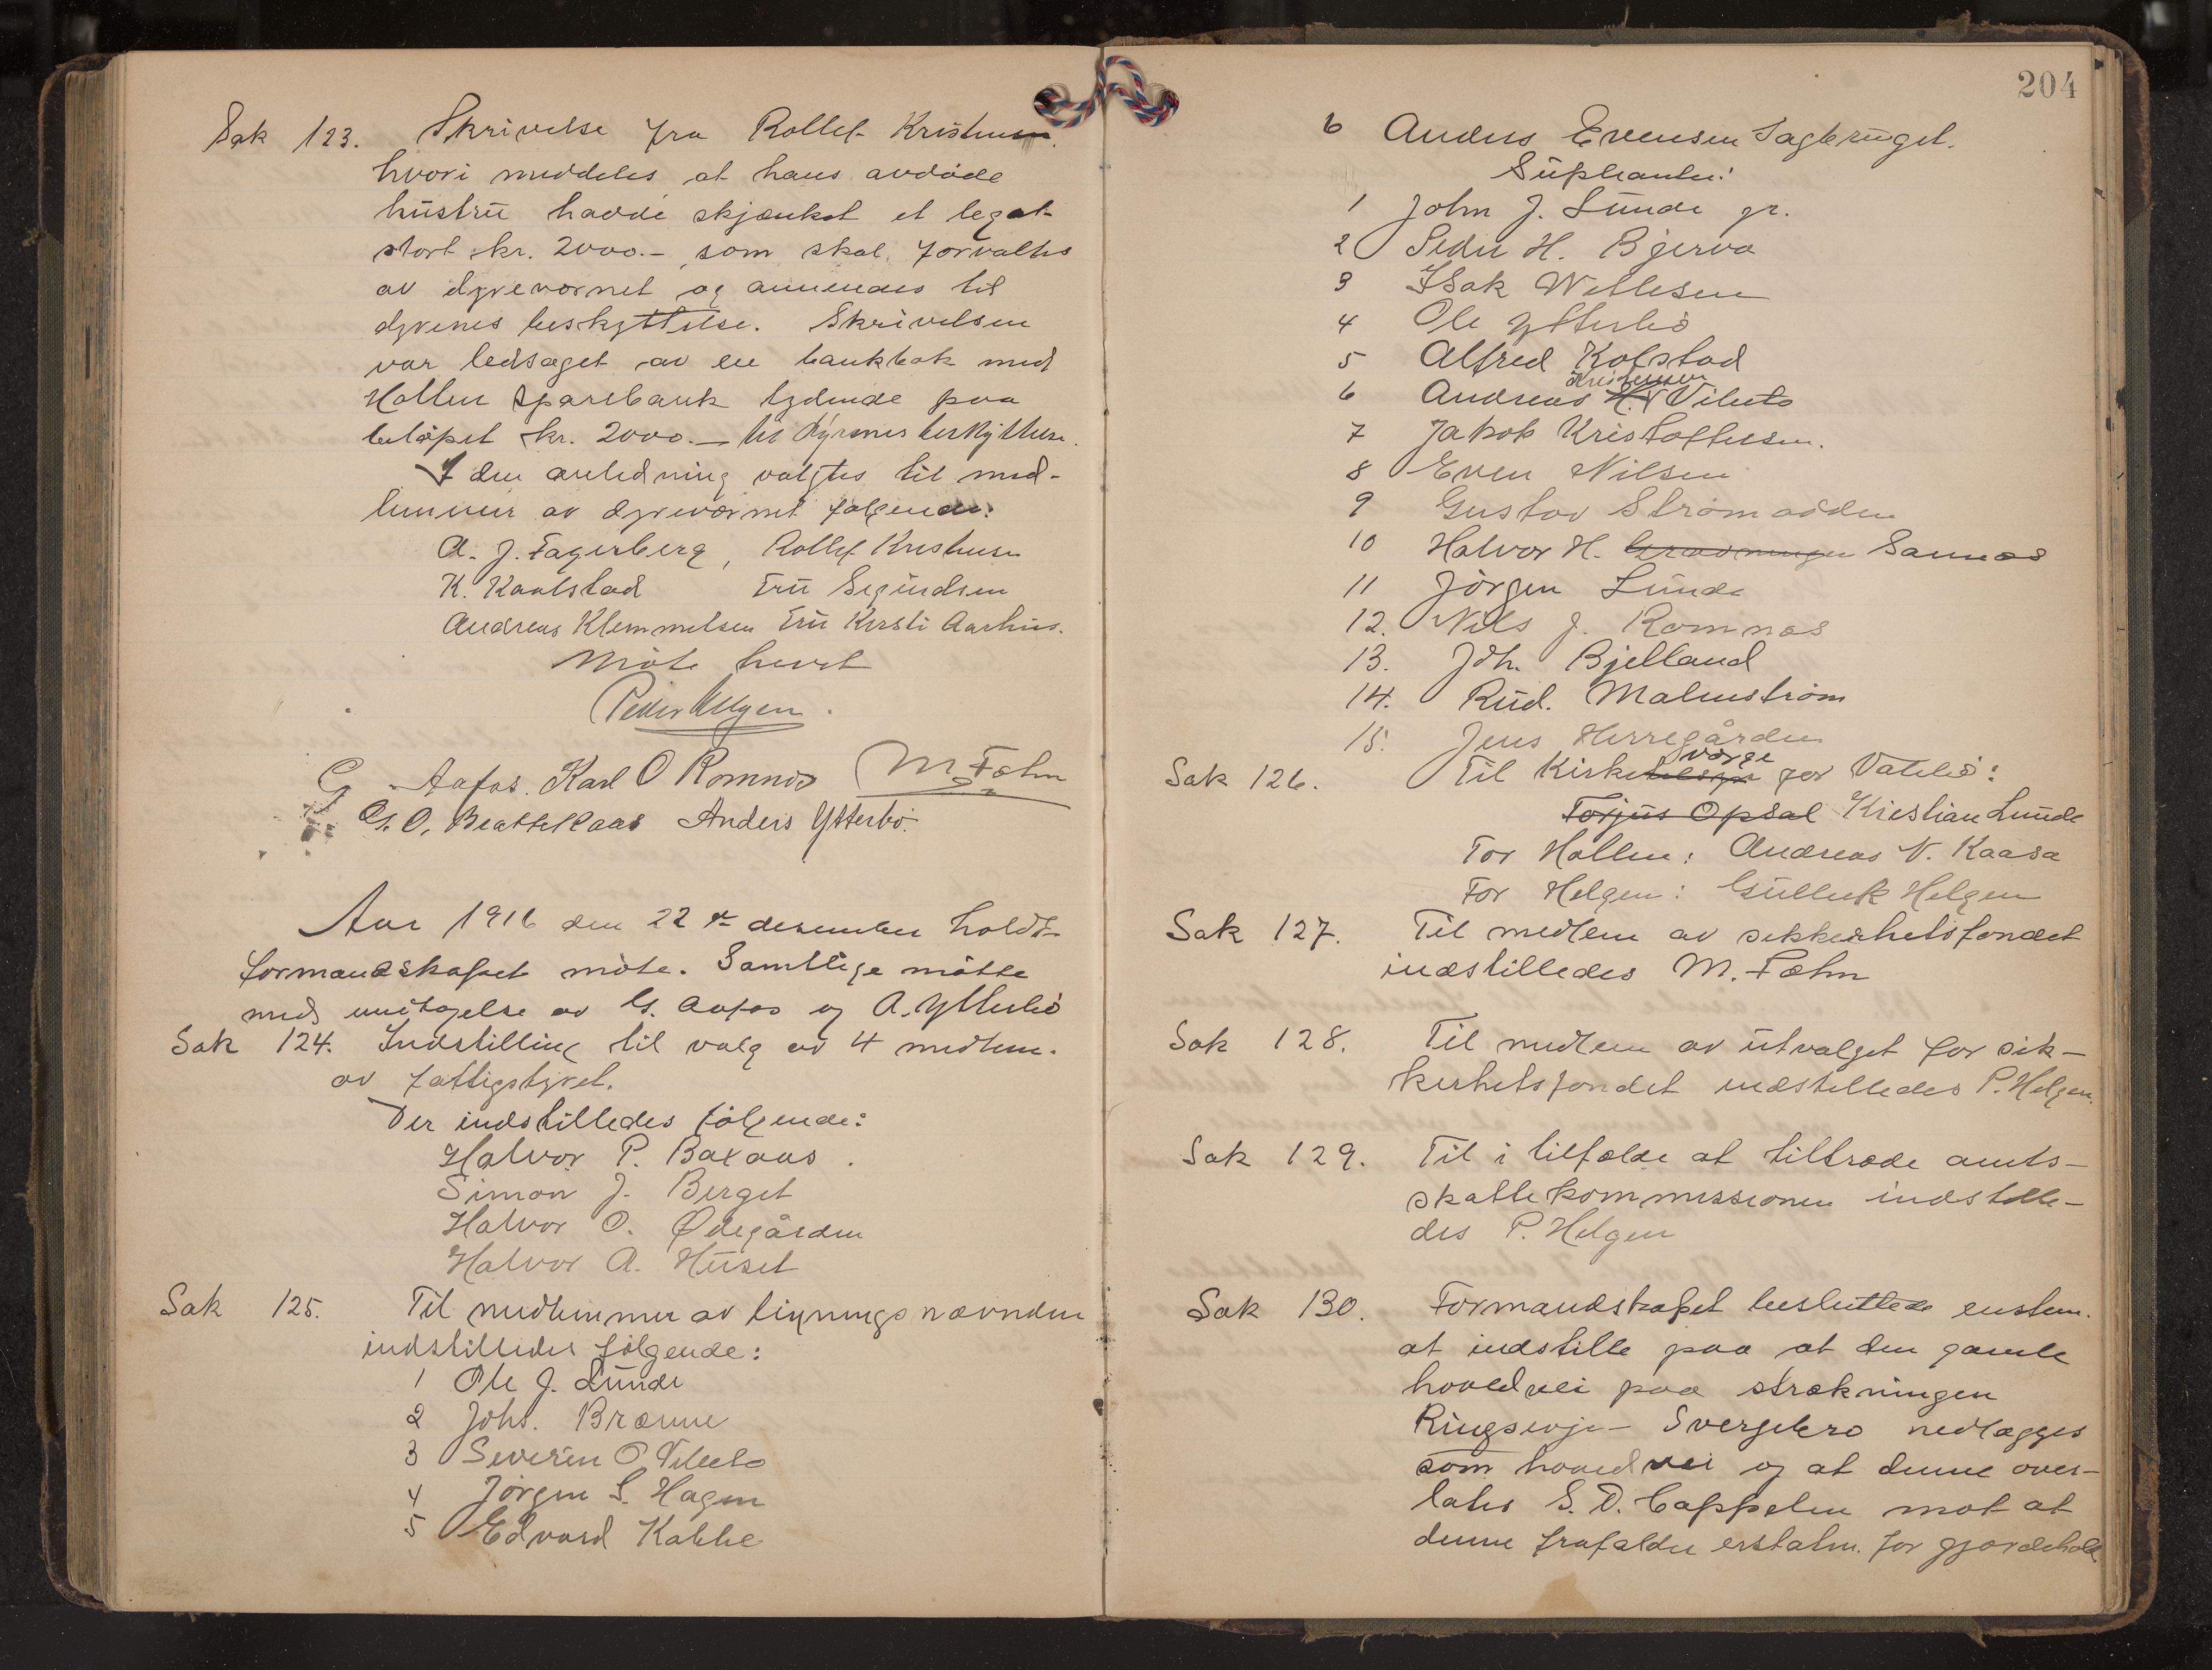 Sak 123. Skrivelse fra Rollef Kristensen
hvori meddeles at hans avdøde
hustru havde skjænket et legat
stort kr. 2000.- som skal forvaltes
av dyreværnet og anvendes til
dyrenes beskyttelse. Skrivelsen
var ledsaget av en bankbok med
Hollen Sparebank lydende paa
beløpet kr. 2000.- til dyrenes beskyttelse.
I den anledning valgtes til med-
lemmer av dyreværnet følgende:
A. J. Fagerberg, Rollef Kristensen
K. Kaalstad Fru Segundsen
Andreas Klemmetsen Fru Kirsti Aarhus.
Møte hevet
Peder Helgen.
G. Aafos. Karl O Romnes M Fæhn
G. O. Brattekaas Anders Ytterbø.
Aar 1916 den 22de desember holdt
formandskapet møte. Samtlige møtte
med undtagelse av G. Aafos og A. Ytterbø
Sak 124. Indstilling til valg av 4 medlem.
av fattigstyret.
Der indstilledes følgende:
Halvor P. Baxaas.
Simon J. Berget
Halvor O. Ødegården
Halvor A. Huset
Sak 125. Til medlemmer av ligningsnævnden
indstilledes følgende:
1 Ole J. Lunde
2 Johs. Brænne
3 Severin O. Vibeto
4 Jørgen S. Hagen
5 Edvard Kabbe
204
6 Anders Evensen Sagbruget.
Supleanter:
1 John J. Lunde gr.
2 Peder H. Bjerva
3 Isak Wetlesen
4 Ole Ytterbø
5 Alfred Kolstad
Kristensen
6 Andreas H. Vibeto
7 Jakob Kristoffersen.
8 Even Nilsen
9 Gustav Strømodden
10 Halvor H. Grævningen Sannes
11 Jørgen Lunde
12. Nils J. Romnes
13. Joh. Bjelland
14. Rud. Malmstrøm
15. Jens Herregården
værge
Sak 126. Til Kirketilsyn for Vatebø:
Torjus Opsal Kristian Lunde
For Hollen: Andreas N. Kaasa
For Helgen: Gulleik Helgen
Sak 127. Til medlem av sikkerhetsfondet
indstilledes M. Fæhn
Sak 128. Til medlem av utvalget for sik-
kerhetsfondet indstilledes P. Helgen.
Sak 129. Til i tilfælde at tiltræde amts-
skattekommissionen indstille-
des P. Helgen
Sak 130. Formandskapet besluttede enstem.
at indstille paa at den gamle
hovedvei paa strækningen
Ringsevje- Svergebro nedlægges
som hovedvei og at denne over-
lates S. D. Cappelen mot at
denne frafalder erstatn. for gjærdehold